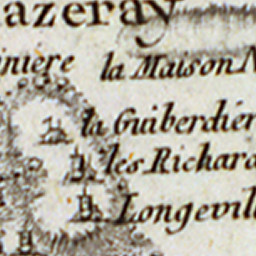 azeray
iniere la Maison N
la Guiberdier
les Richard
Longevill